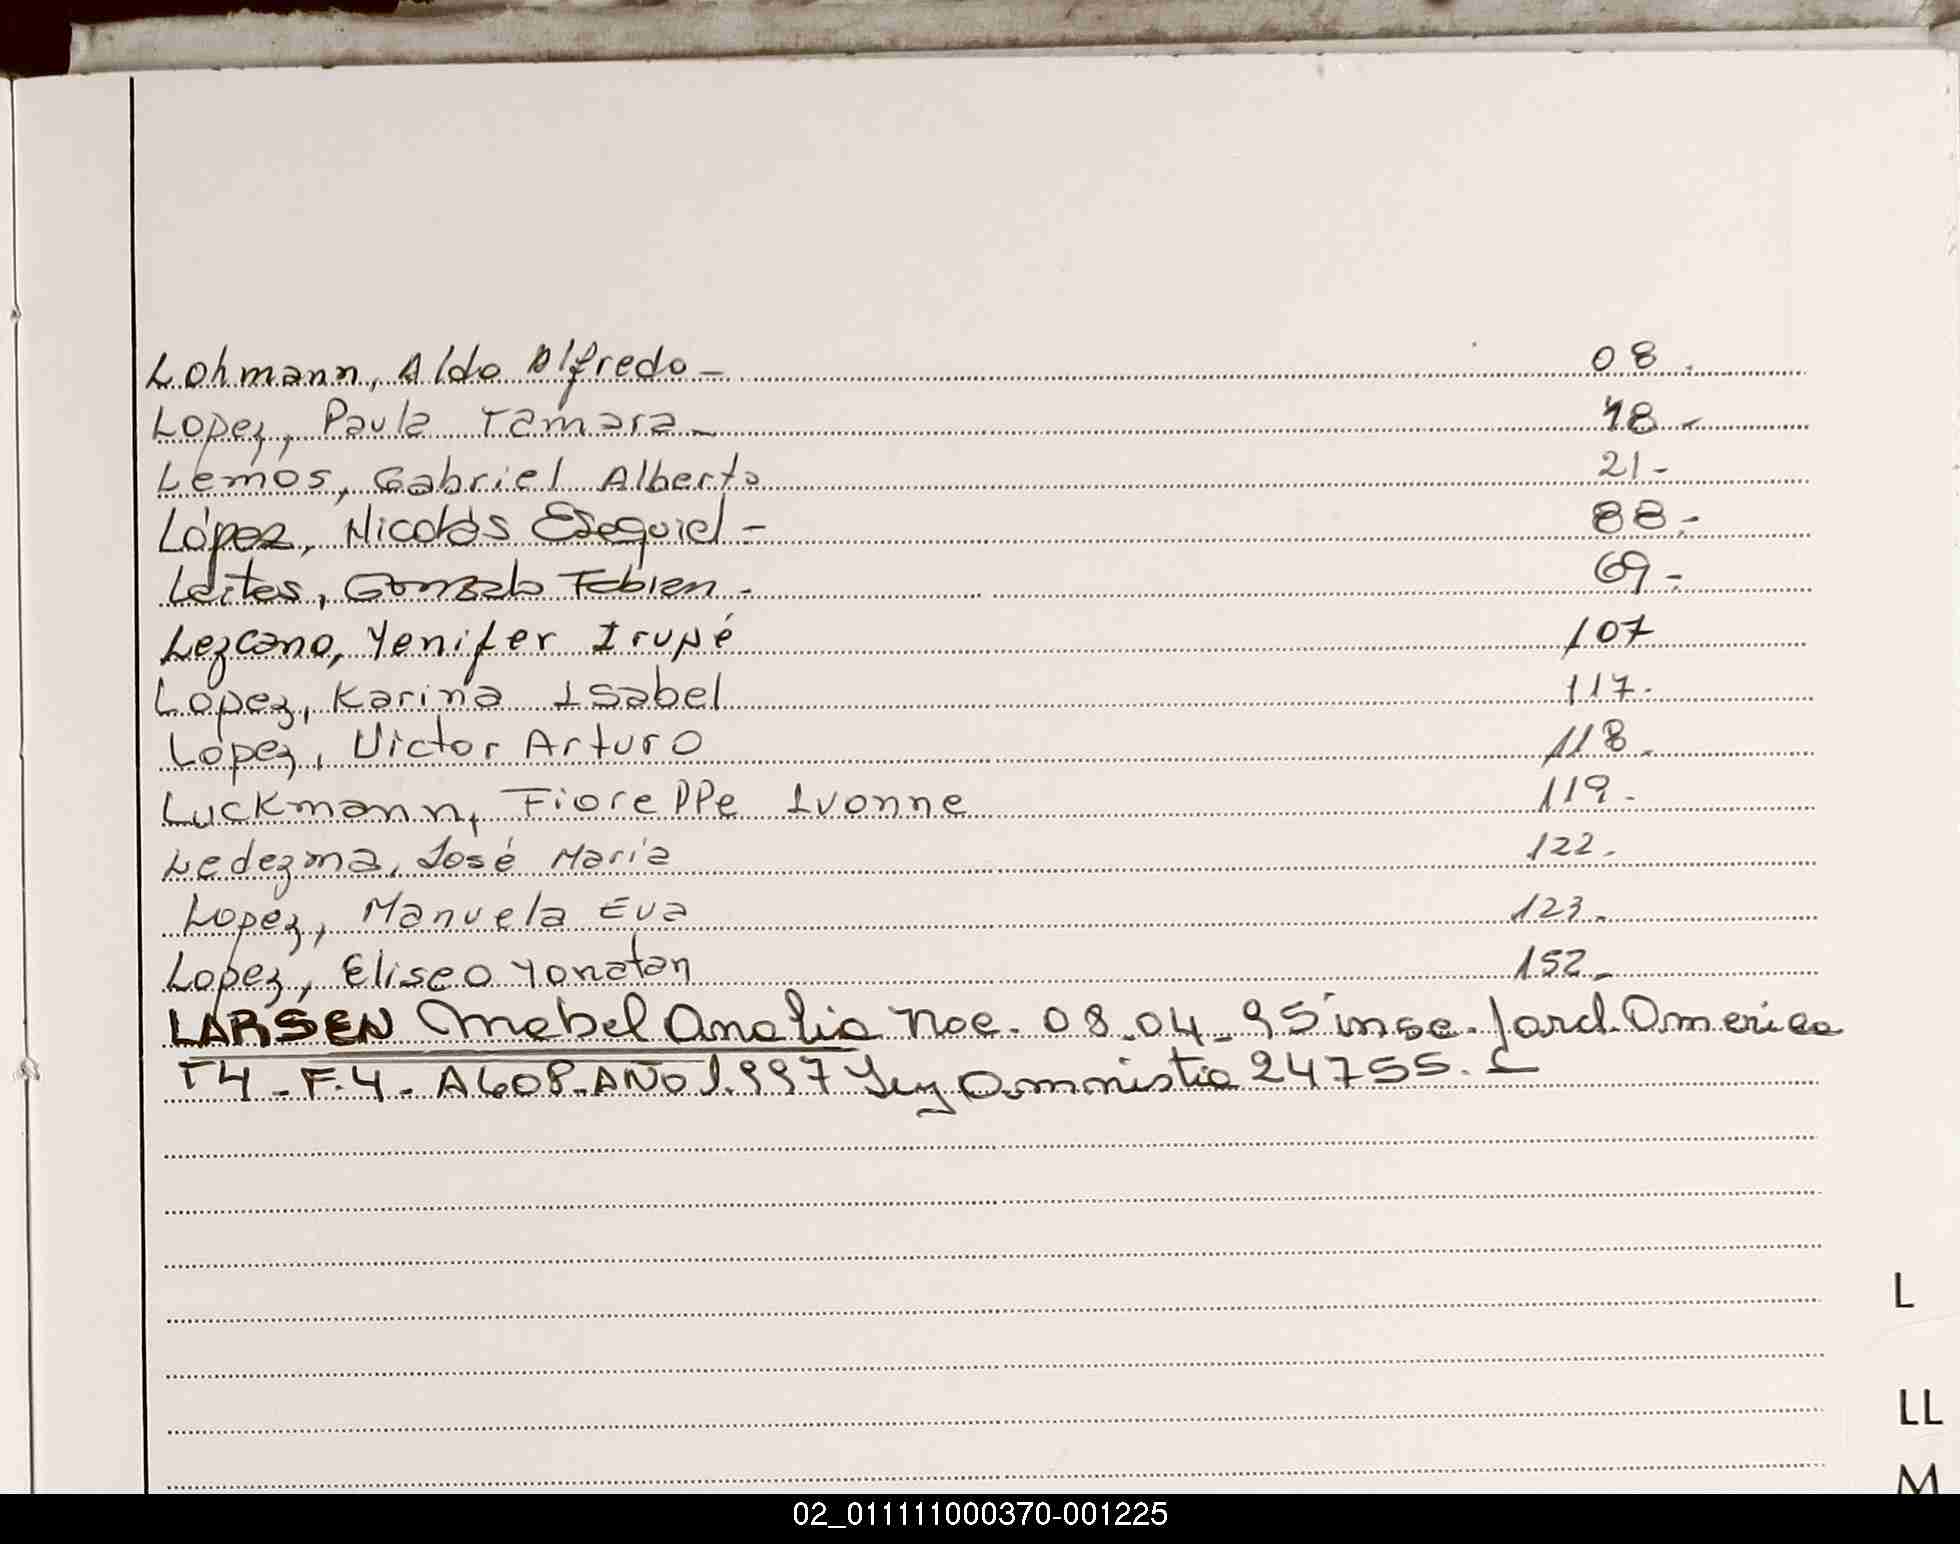 Lohmann, Aldo Alfredo - 08.
Lopez, Paula Tamara - 18 -
Lemos, Gabriel Alberto 21 -
López, Nicolás Esequiel - 88 -
Leites, Gonzalo Fabian - 69 -
Lezcano, Yenifer Irupé 107
Lopez, Karina Isabel 117.
Lopez, Victor Arturo 118.
Luckmann, Fiorella Ivonne 119.
Ledezma, José Maria 122.
Lopez, Manuela Eva 123.
Lopez, Eliseo Yonatan 152.
LARSEN Mabel Analia Nac. 08.04.95 insc. Jard. America
T4 - F.4 - A608 - AÑO 1.997 Ley Ammistia 24755.
L
LL
M
02_011111000370-001225